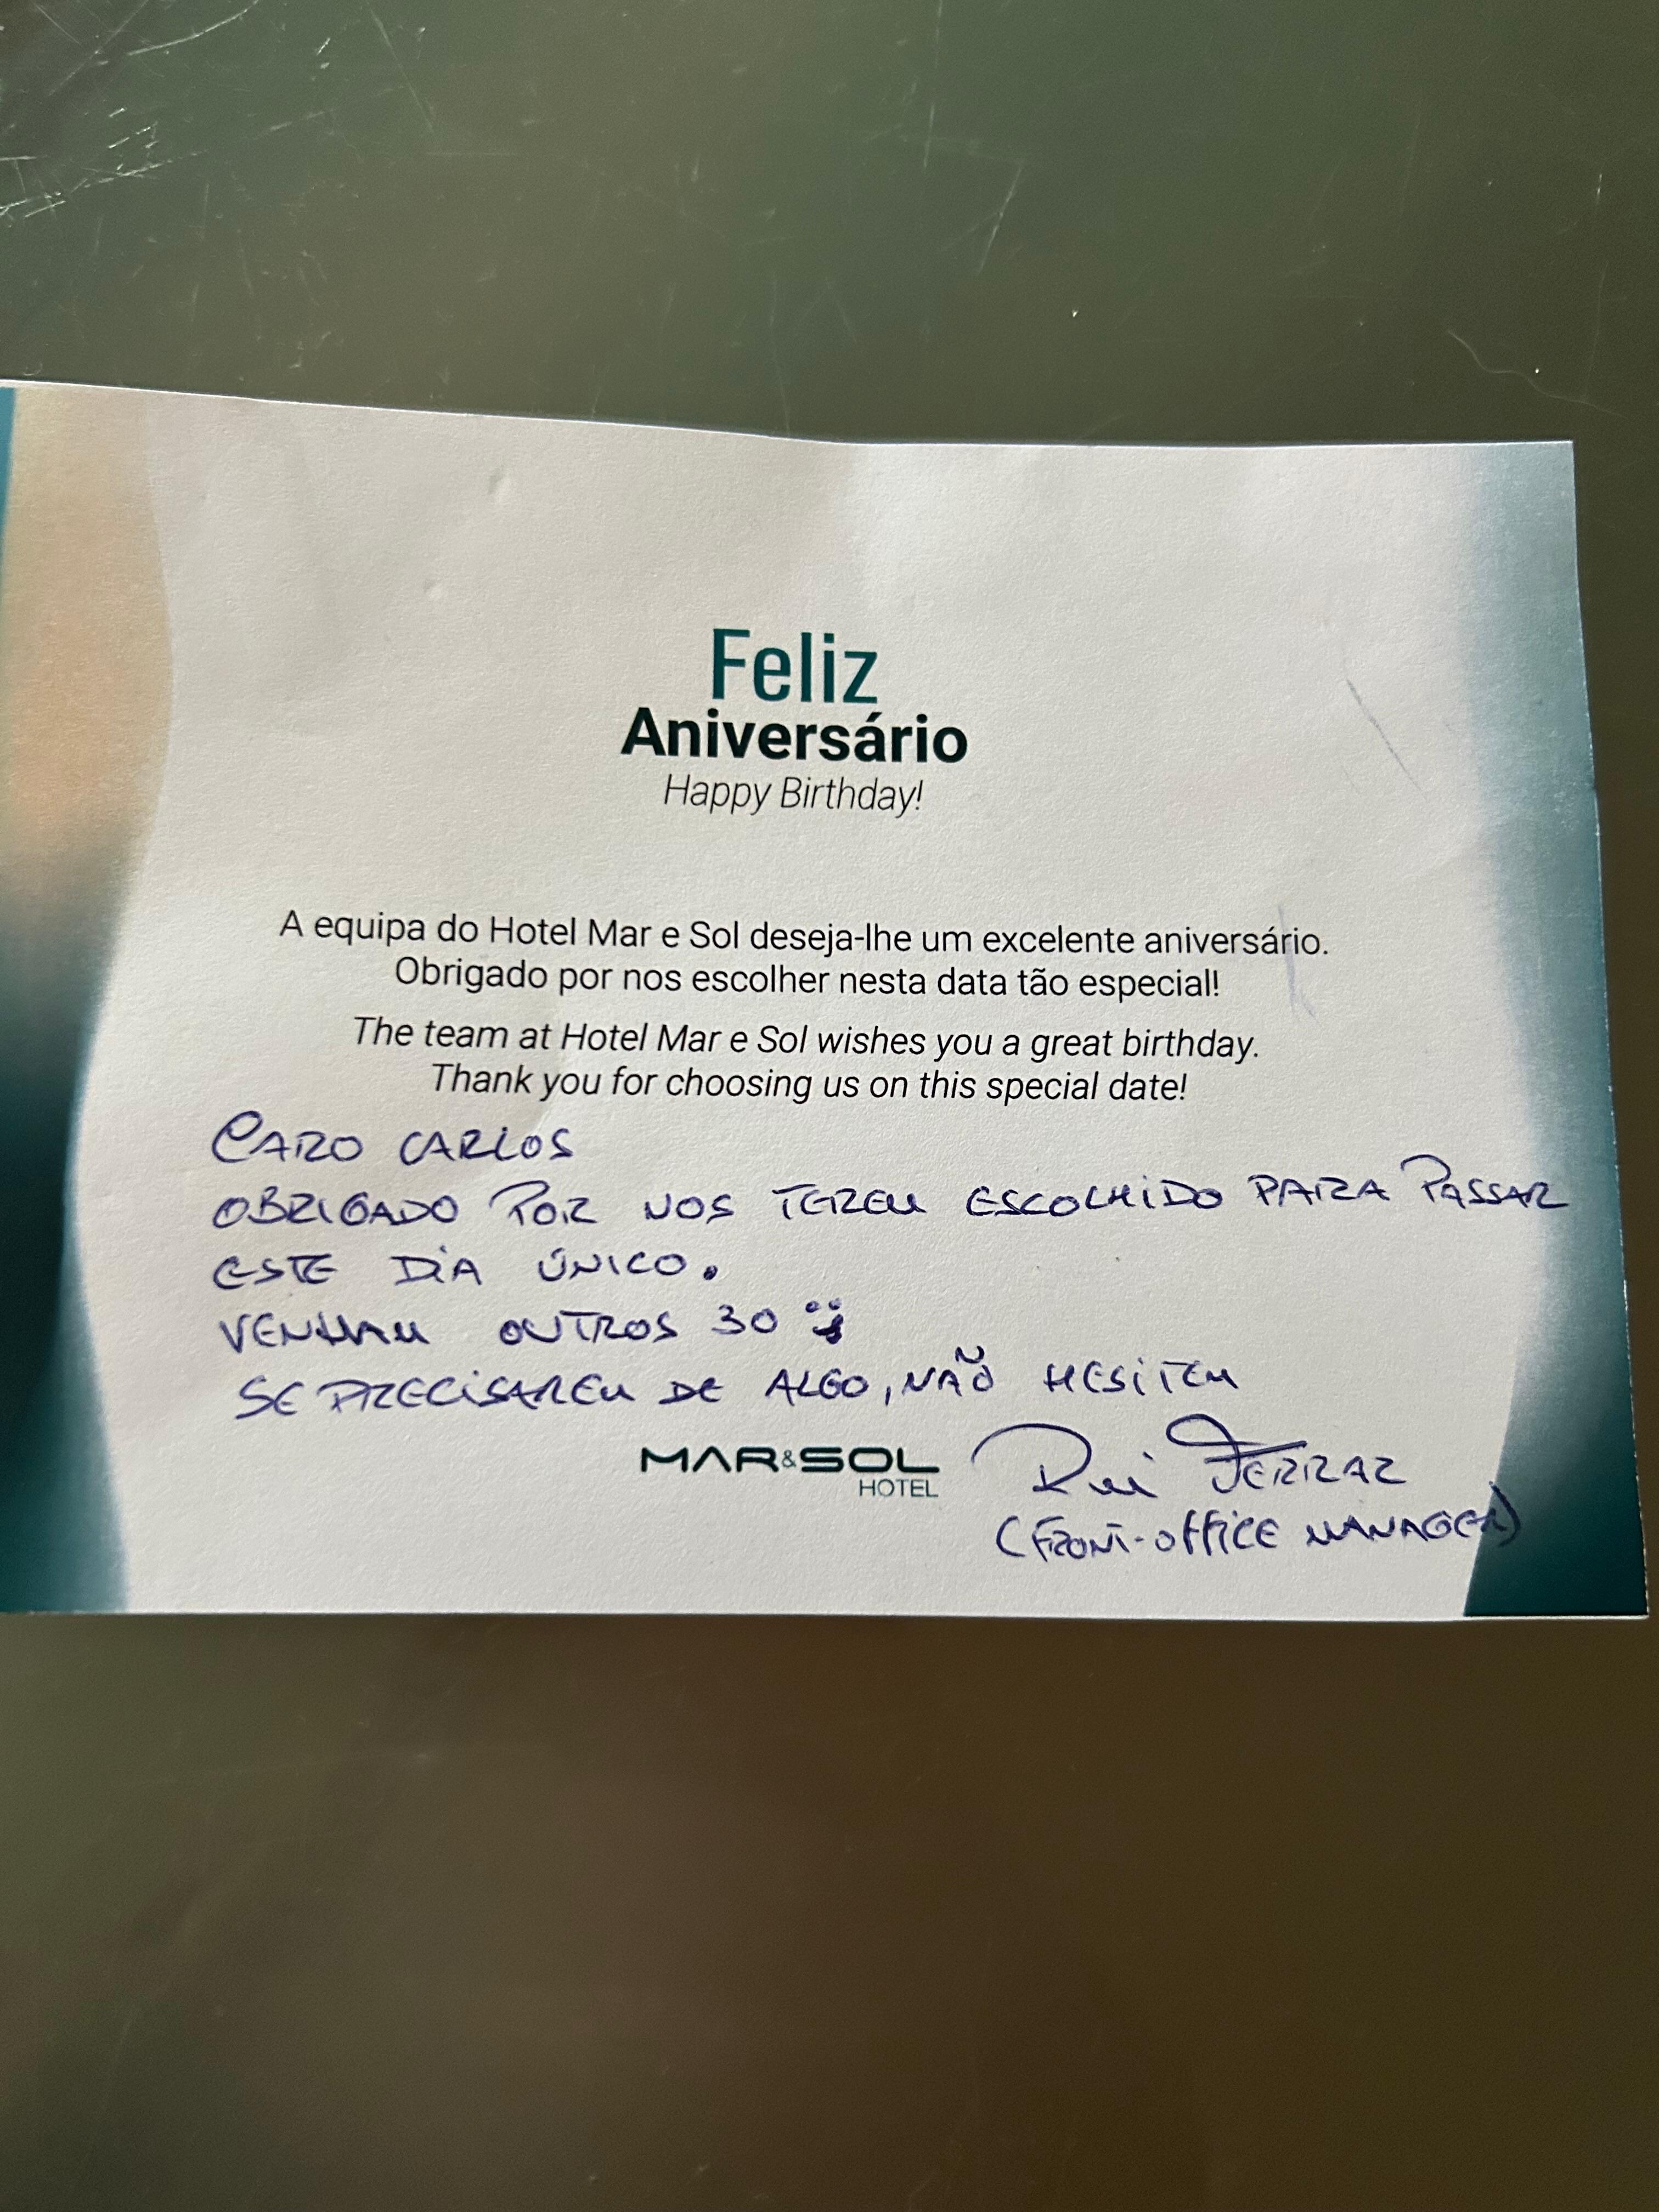 Feliz
Aniversário
Happy Birthday!
A equipa do Hotel Mar e Sol deseja-lhe um excelente aniversário.
Obrigado por nos escolher nesta data tão especial!
The team at Hotel Mar e Sol wishes you a great birthday.
Thank you for choosing us on this special date!
CARO CARLOS
OBRIGADO POR NOS TEREM ESCOLHIDO PARA PASSAR
ESTE DIA ÚNICO.
VENHAM OUTROS 30 :)
SE PRECISAREM DE ALGO, NÃO HESITEM
MAR&SOL
HOTEL
Rui FERRAZ
(FRONT-OFFICE MANAGER)